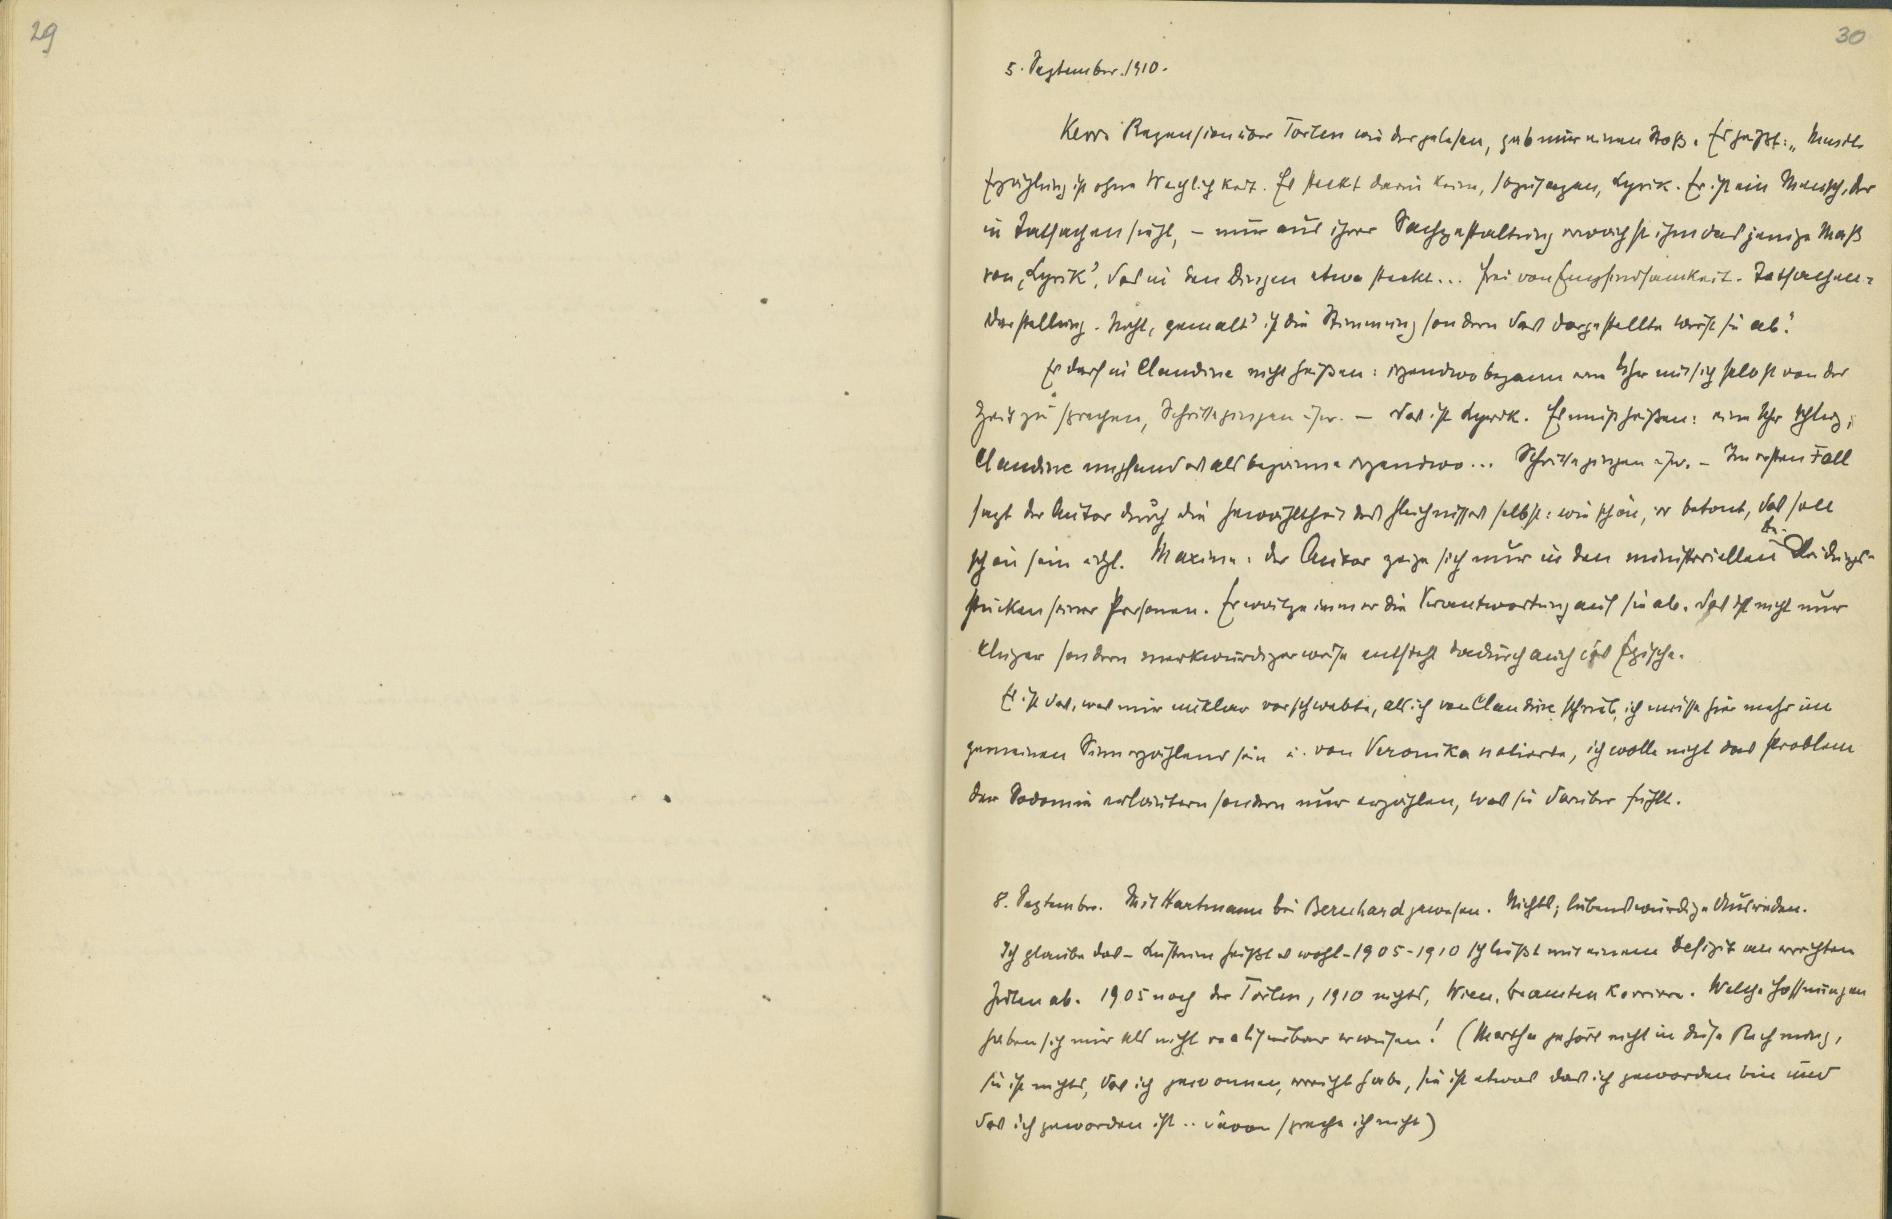 29
30
5. September. 1910.
Kerrs Rezension über Törless wieder gelesen, gab mir einen Stoß. Es heißt: „Musils
Erzählung ist ohne Weichlichkeit. Es steckt darin keine, sozusagen, Lyrik. Er ist ein Mensch, der
in Tatsachen sieht, – nur aus ihrer Sachgestaltung erwächst ihm dasjenige Maß
von ‚Lyrik', das in den Dingen etwa steckt... Frei von Empfindsamkeit. Tatsachen=
darstellung. Nicht ‚gemalt' ist die Stimmung sondern das dargestellte wirft sie ab."
Es darf in Claudine nicht heißen: irgendwo begann eine Uhr mit sich selbst von der
Zeit zu sprechen, Schritte gingen usw. – das ist Lyrik. Es muß heißen: eine Uhr schlug,
Claudine empfand es als begänne irgendwo... Schritte gingen usw. – Im ersten Fall
sagt der Autor durch die Gewähltheit des Gleichnisses selbst: wie schön, er betont, das soll
schön sein udgl. Maxime: der Autor zeige sich nur in den ministeriellen Kleidungs-
stücken seiner Personen. Er wälze immer die Verantwortung auf sie ab. Das ist nicht nur
klüger sondern merkwürdigerweise entsteht dadurch auch das Epische.
Es ist das, was mir unklar vorschwebte, als ich von Claudine schrieb, ich müsse hier mehr im
gemeinen Sinn erzählend sein u. von Veronika notierte, ich wolle nicht das Problem
der Sodomie erläutern sondern nur erzählen, was sie darüber fühlt.
8. September. Mit Hartmann bei Bernhard gewesen. Nichts; liebenswürdige Ausreden.
Ich glaube das – Lustrum heißt es wohl – 1905-1910 schließt mit einem Defizit an erreichten
Zielen ab. 1905 noch der Törless, 1910 nichts, Wien, Beamten Karriere. Welche Hoffnungen
haben sich mir als nicht realisierbar erwiesen! (Martha gehört nicht in diese Rechnung,
sie ist nichts, das ich gewonnen, erreicht habe, sie ist etwas das ich geworden bin und
das ich geworden ist .. davon spreche ich nicht)